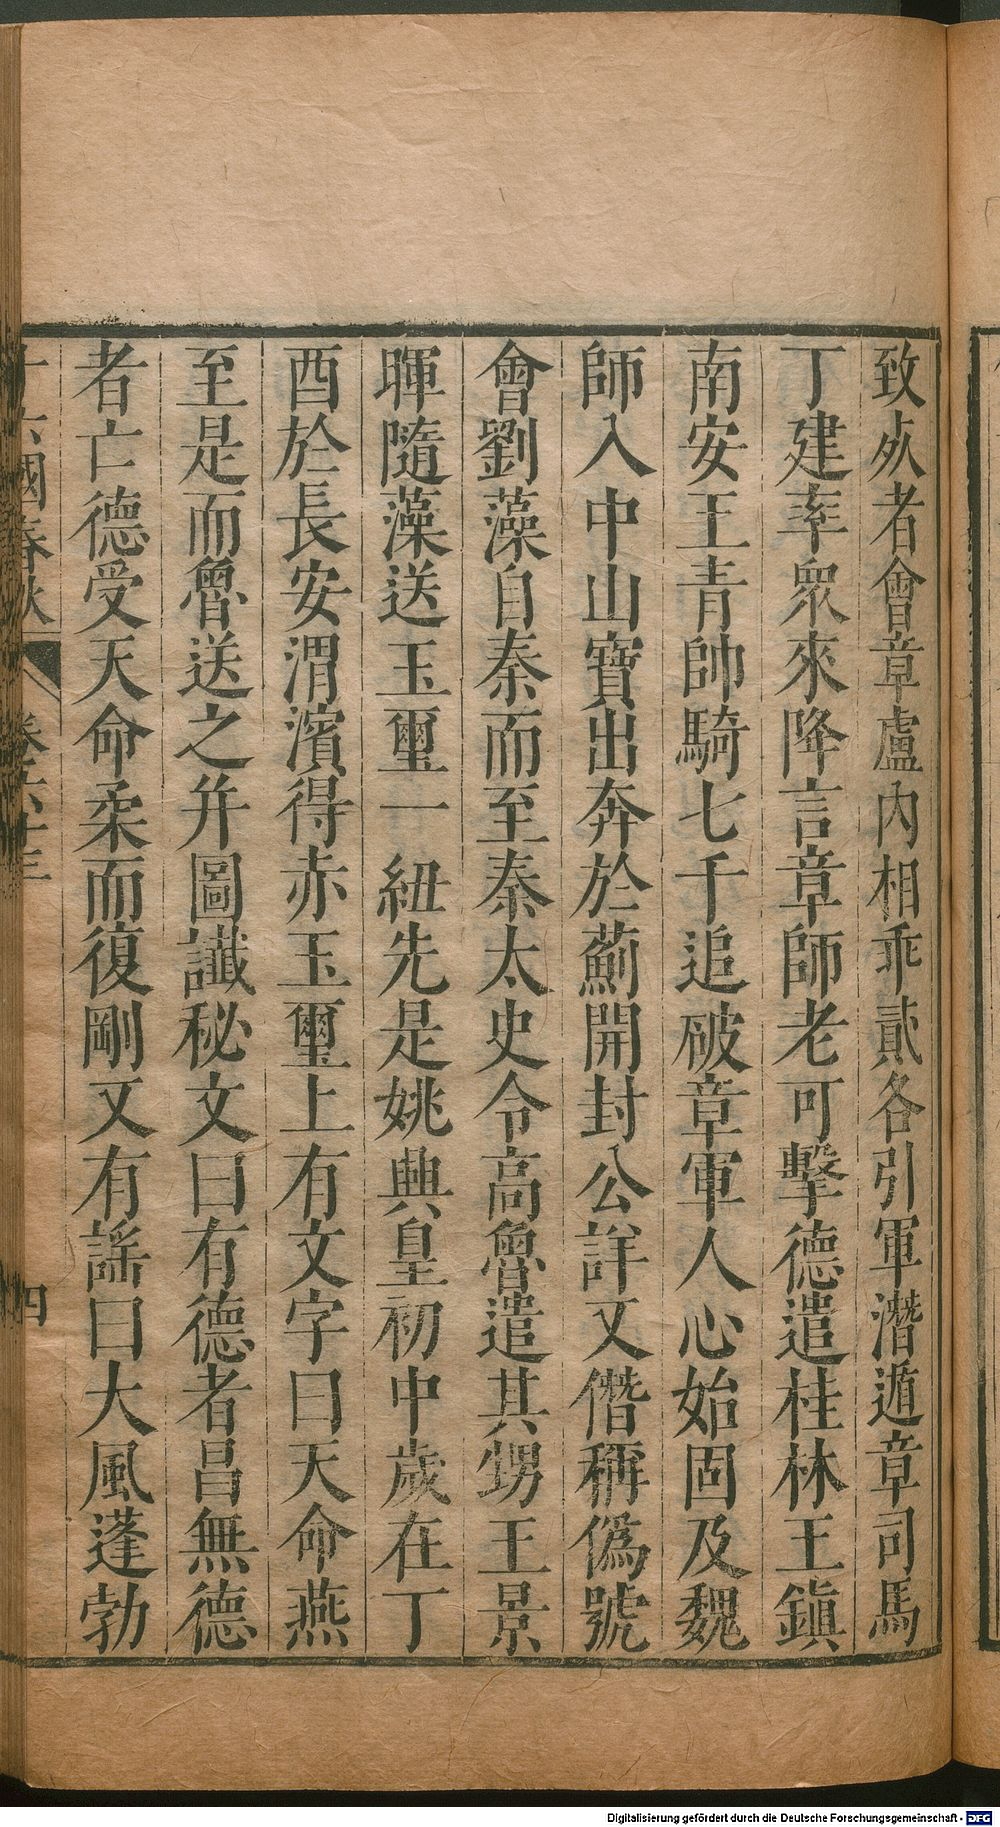 致㱥者會章盧內相乖貳各引軍潛遁章司馬
丁建率衆來降言章師老可擊德遣桂林王鎭
南安王青帥騎七千追破章軍人心始固及魏
師入中山寶出奔於薊開封公詳又僭稱僞號
會劉藻自秦而至秦太史令高魯遣其甥王景
暉隨藻送玉璽一紐先是姚興皇初中歲在丁
酉於長安渭濱得赤玉璽上有文字曰天命燕
至是而魯送之幷圖讖秘文曰有德者昌無德
者亡德受天命柔而復剛又有謡曰大風蓬勃
十六國春秋 卷六十三 四
Digitalisierung gefördert durch die Deutsche Forschungsgemeinschaft - DFG